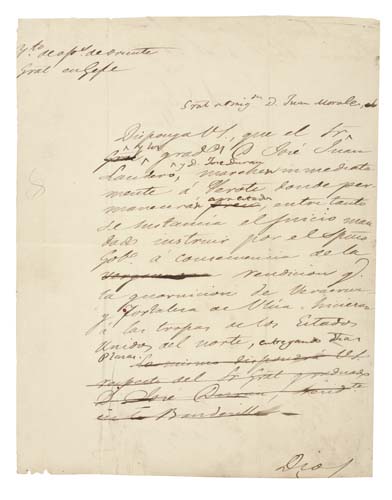 Gral en Gefe
Gral D. Juan Morales
Disponga V.S. que el Sr
Gral y los grad.s D. José Juan
y D. José Duran
Landero, marchen inmediata
mente á Perote donde per
manecerán arrestados, entre tanto
se sustancia el juicio man
dado instruir por el Spmo
Gob.o á consecuencia de la
vergonzosa rendicion q.
la guarnicion de Veracruz
y Fortaleza de Ulúa hicieron
á las tropas de los Estados
Unidos del norte, entregando
Plazas.
Lo mismo dispondrá V.S.
respecto del Sr Gral graduado
D. José Duran
Dios